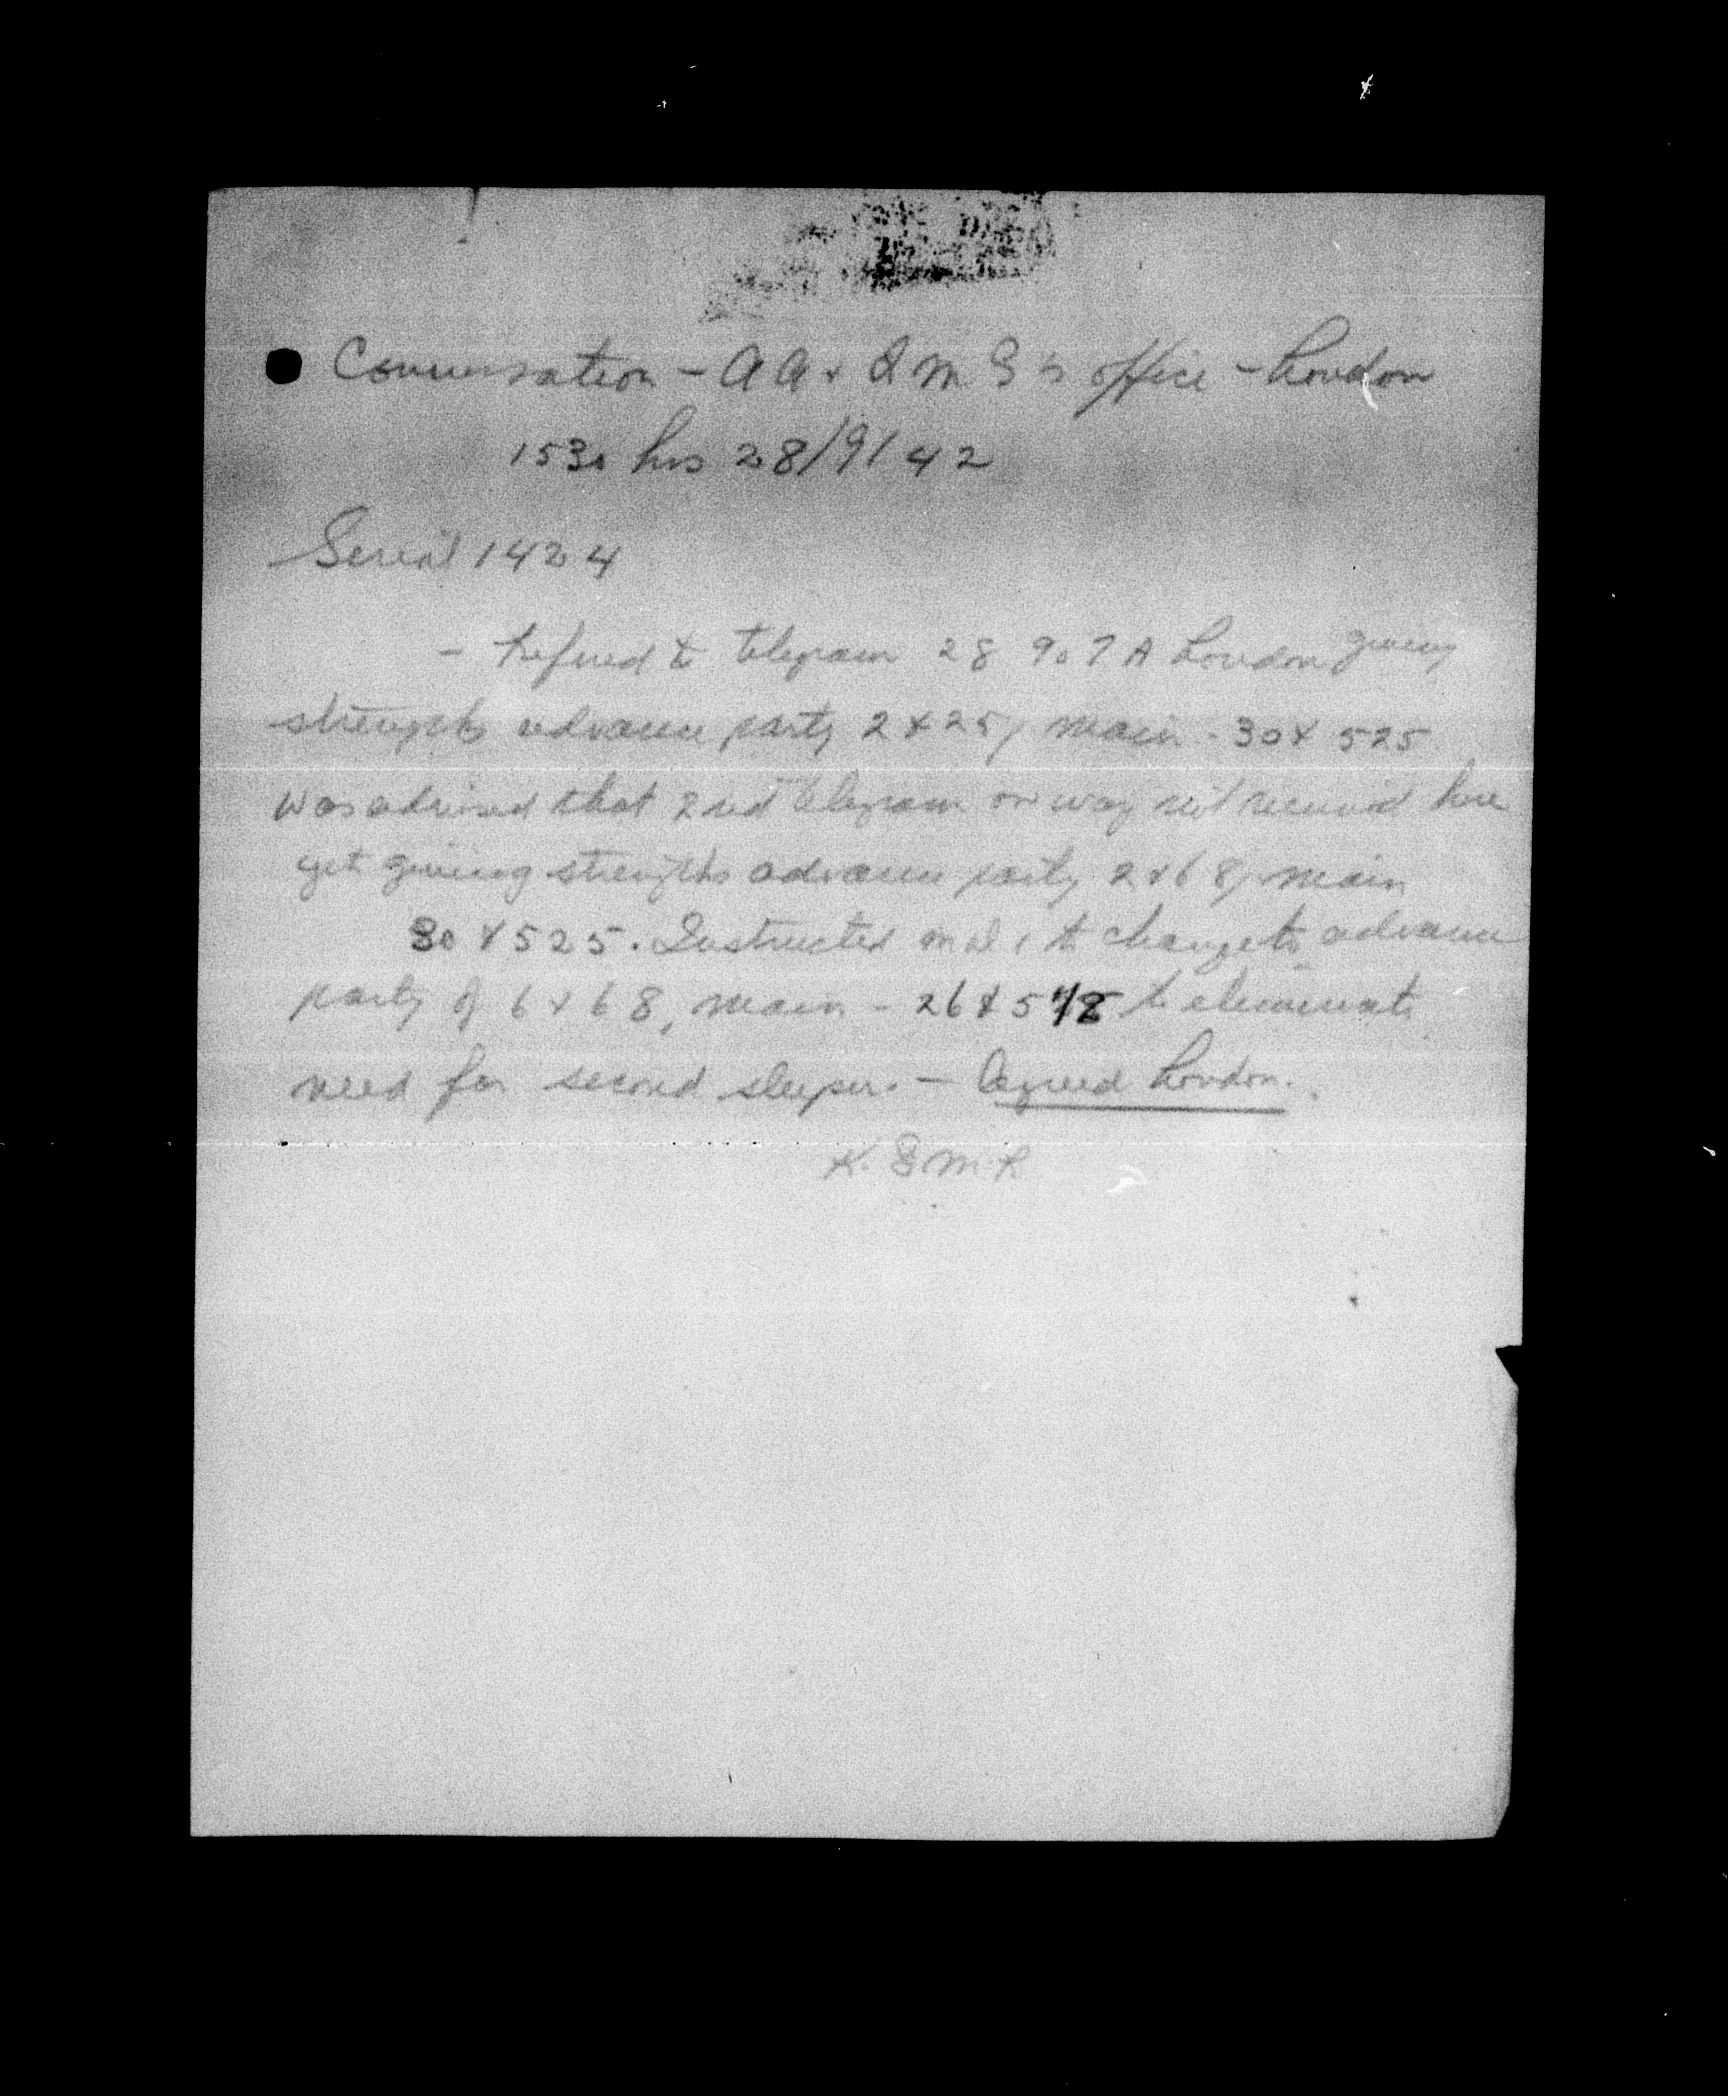 Conversation - AA & QMG's office - London
1530 hrs 28/9/42
Serial 1424
- Refered to telegram 28 907A London giving
strengths advance party 2 & 25, main - 30 & 525
Was advised that 2nd telegram on way not received here
yet giving strengths advance party 2 & 68, main
30 & 525. Instructed to change to advance
party of 6 & 68, main - 26 & to eliminate
need for second sleeper. - Agreed London.